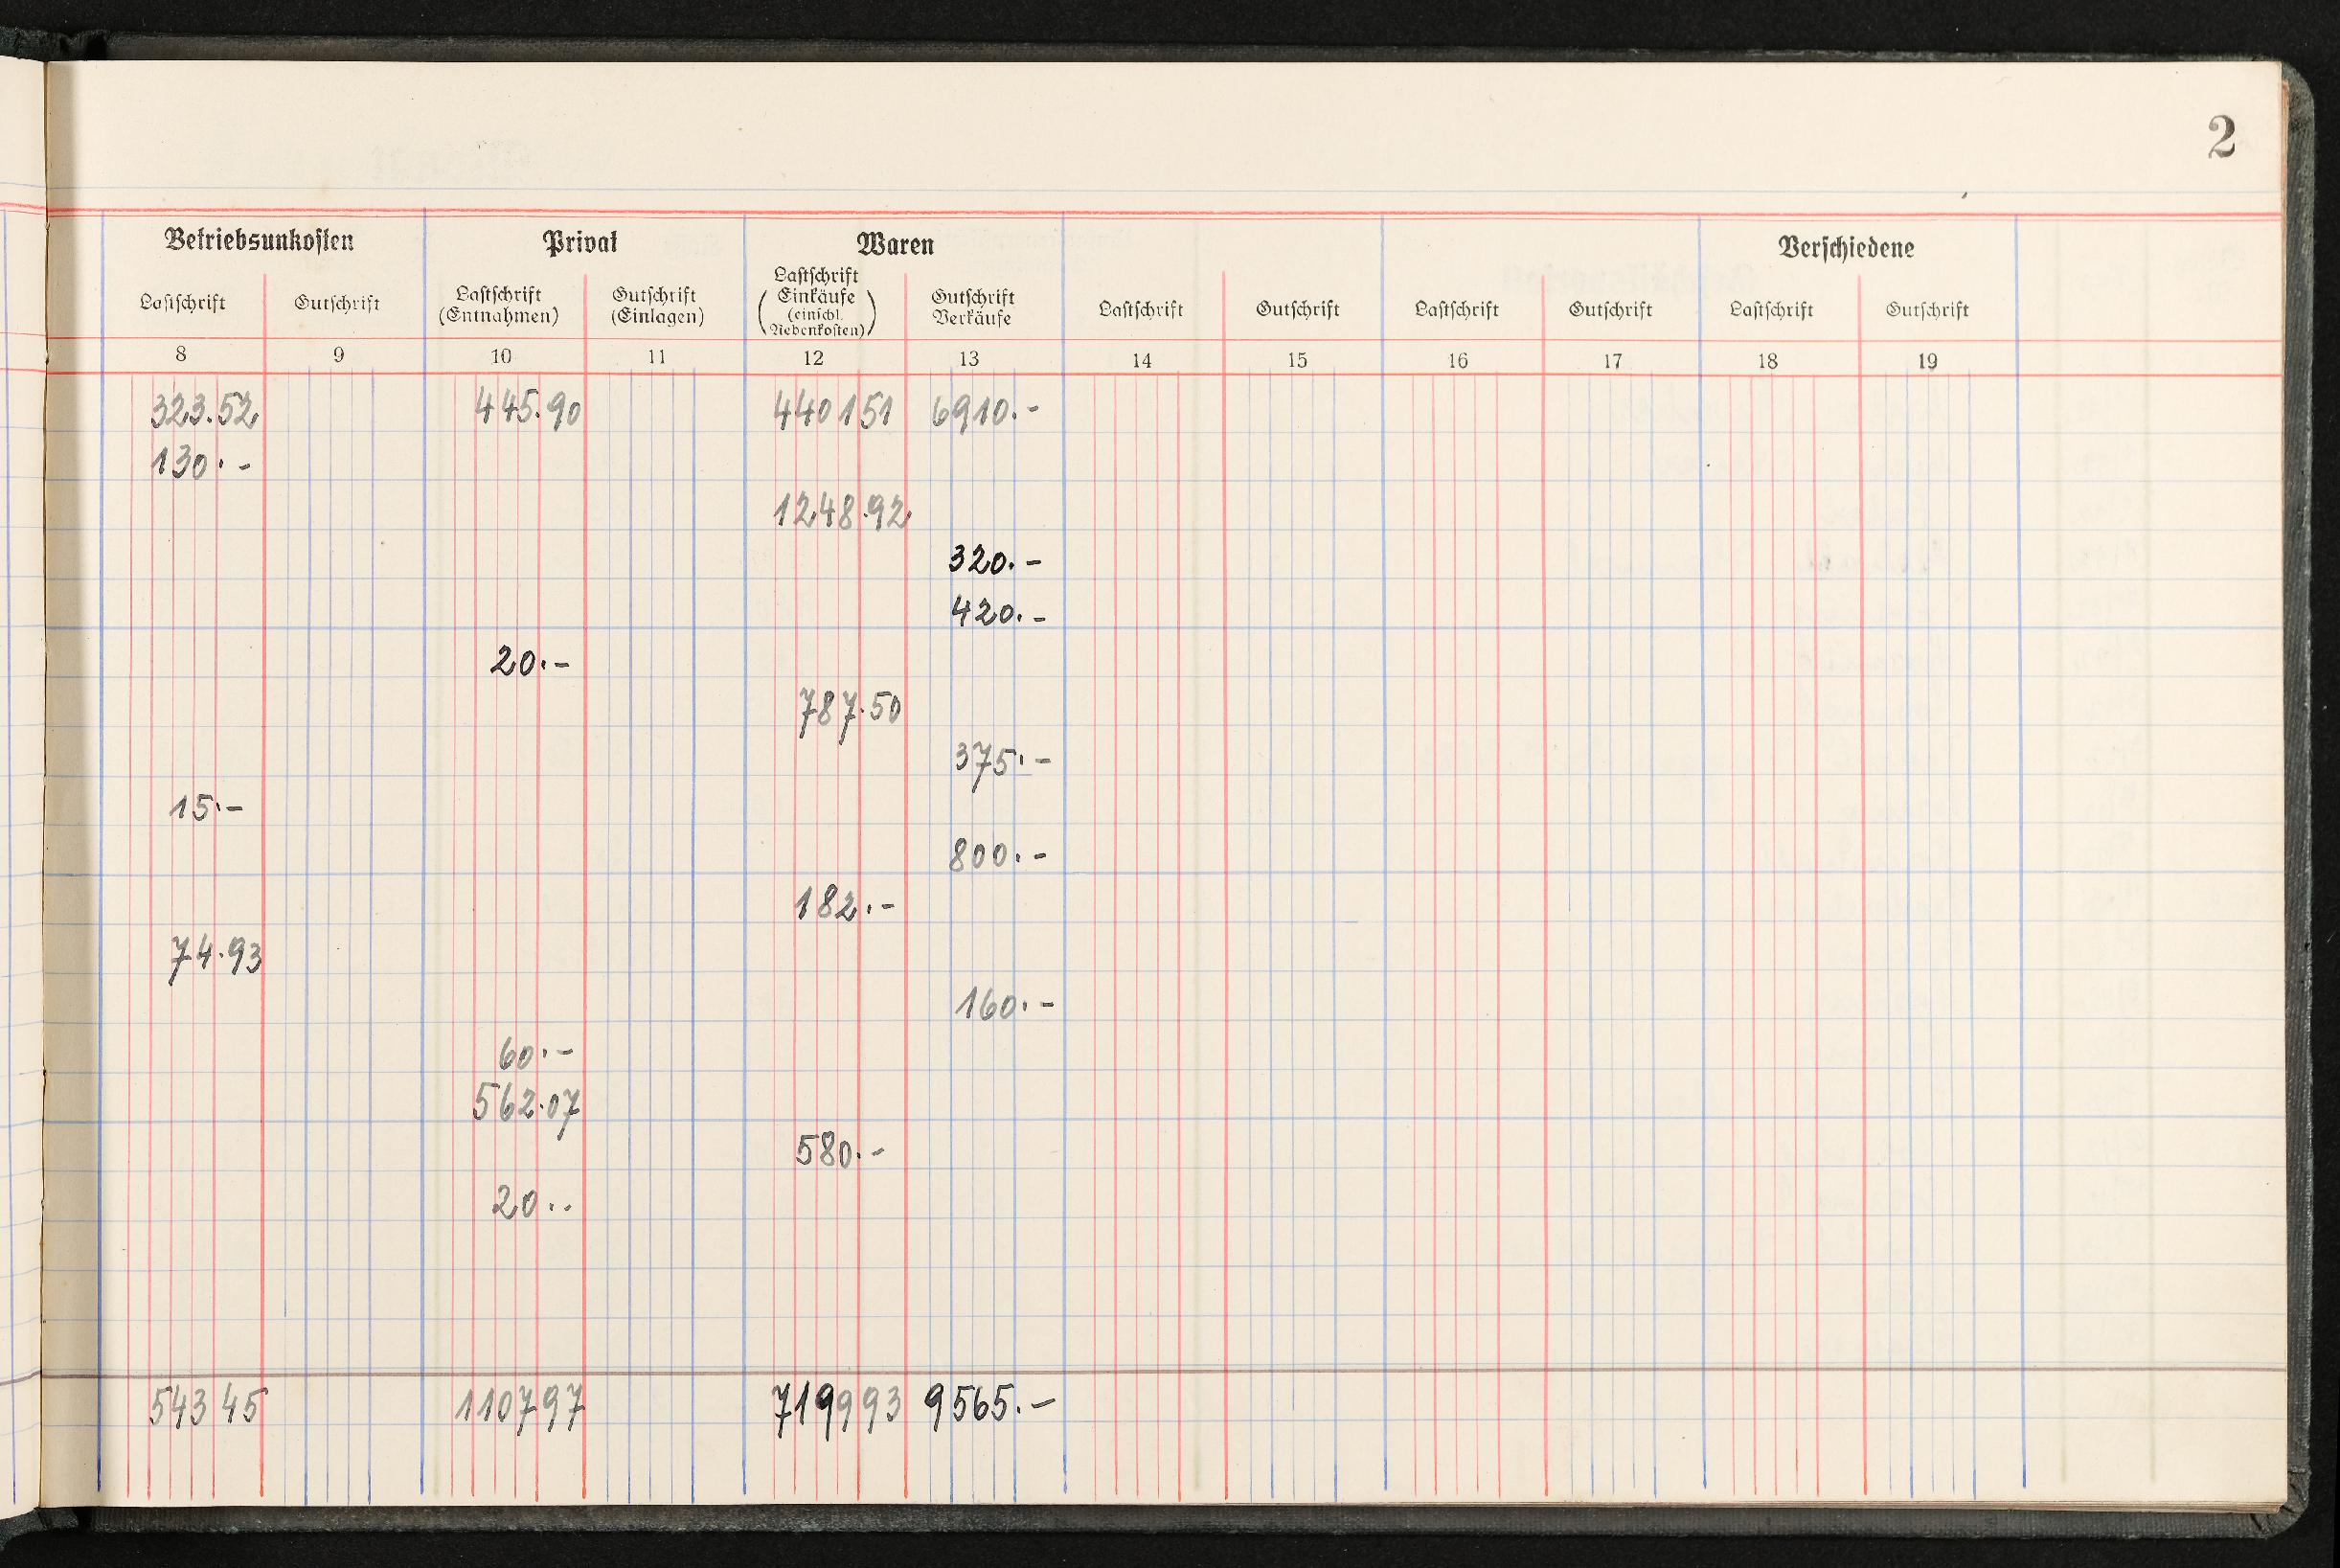 2
Betriebsunkosten Privat Waren Verschiedene
Lastschrift Gutschrift Lastschrift (Entnahmen) Gutschrift (Einlagen) Lastschrift (Einkäufe (einschl. Nebenkosten)) Gutschrift Verkäufe Lastschrift Gutschrift Lastschrift Gutschrift Lastschrift Gutschrift
8 9 10 11 12 13 14 15 16 17 18 19
323.52 445.90 440151 6910.-
130.-
1248.92
320.-
420.-
20.-
787.50
375.-
15.-
800.-
182.-
74.93
160.-
60.-
562.07
580.-
20..
54345 110797 719993 9565.-